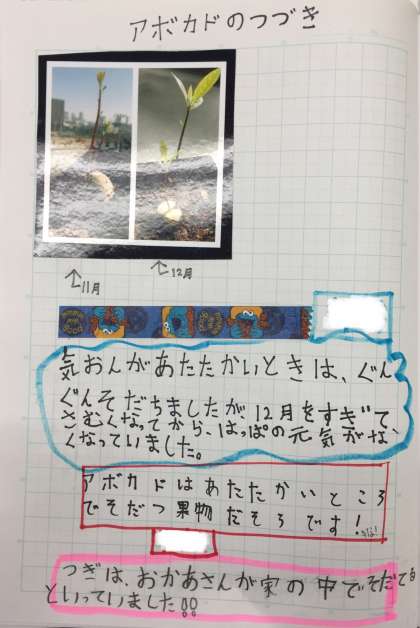 アボカドのつづき
↑11月
↑12月
気おんがあたたかいときは、ぐん
ぐんそだちましたが、12月をすぎて
さむくなってから、はっぱの元気がな
くなっていました。
アボカドはあたたかいところ
でそだつ果物だそうです!
つぎは、おかあさんが家の中でそだてる
といっていました!!